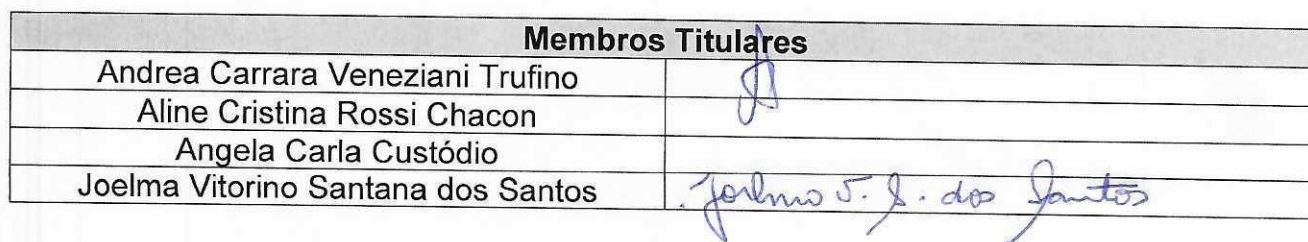 Membros Titulares
Andrea Carrara Veneziani Trufino
Aline Cristina Rossi Chacon
Angela Carla Custódio
Joelma Vitorino Santana dos Santos Joelma V. S. dos Santos